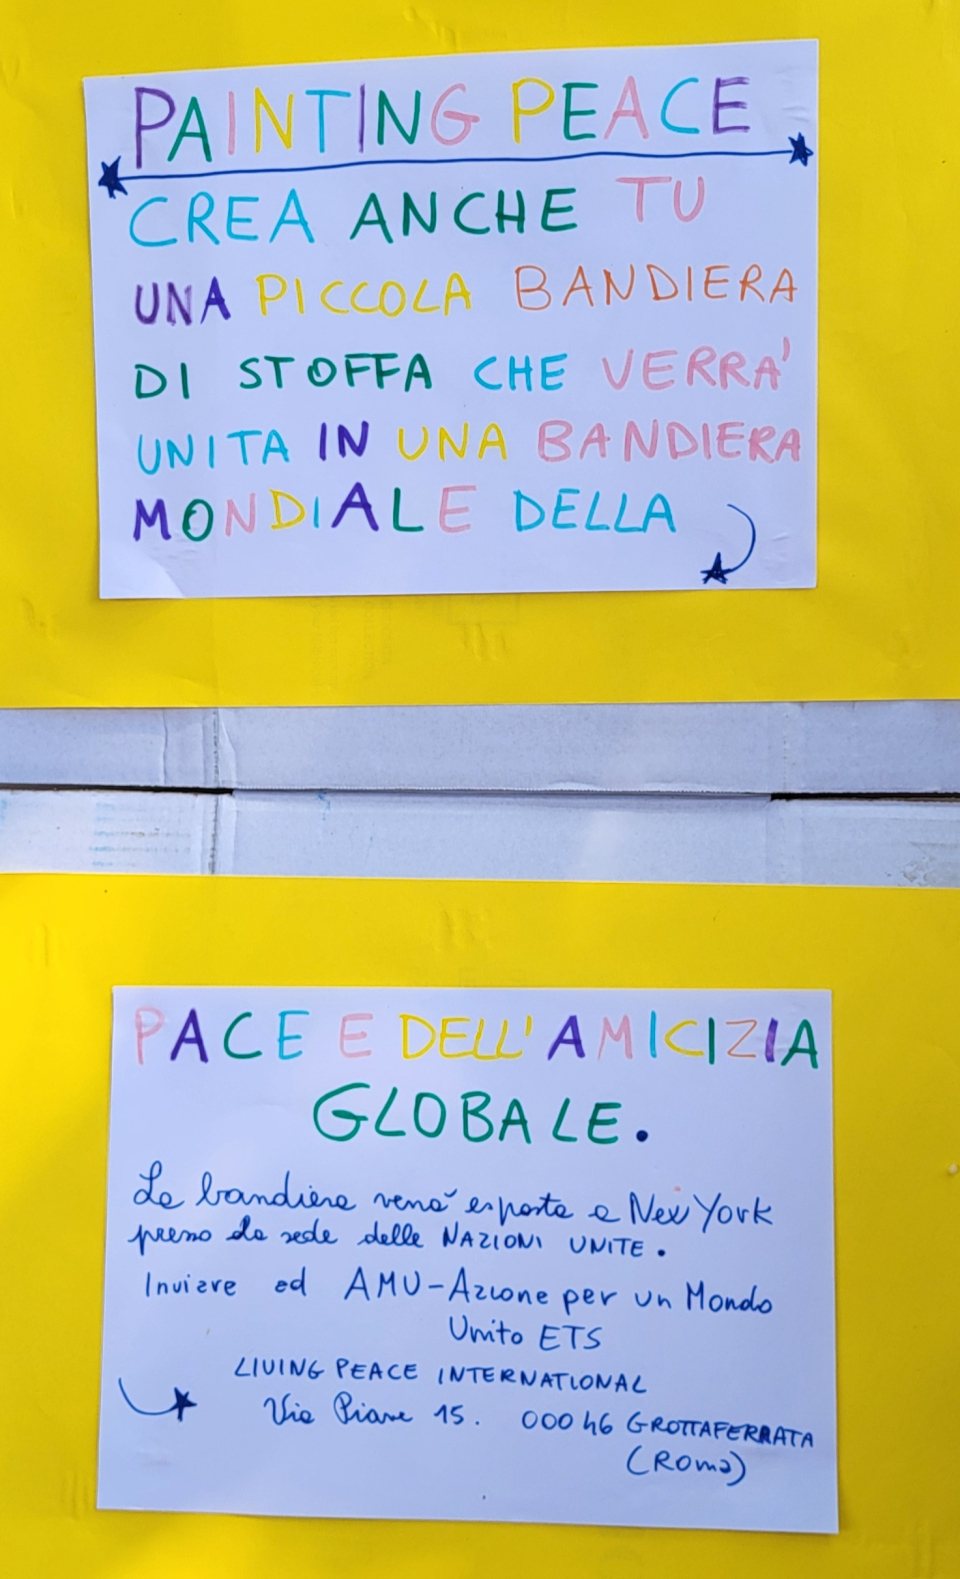 PAINTING PEACE
CREA ANCHE TU
UNA PICCOLA BANDIERA
DI STOFFA CHE VERRA'
UNITA IN UNA BANDIERA
MONDIALE DELLA
PACE E DELL'AMICIZIA
GLOBALE.
La bandiera verrà esposta a New York
presso la sede delle NAZIONI UNITE.
Inviare ad AMU-Azione per un Mondo
Unito ETS
LIVING PEACE INTERNATIONAL
Via Piave 15. 00046 GROTTAFERRATA
(Roma)